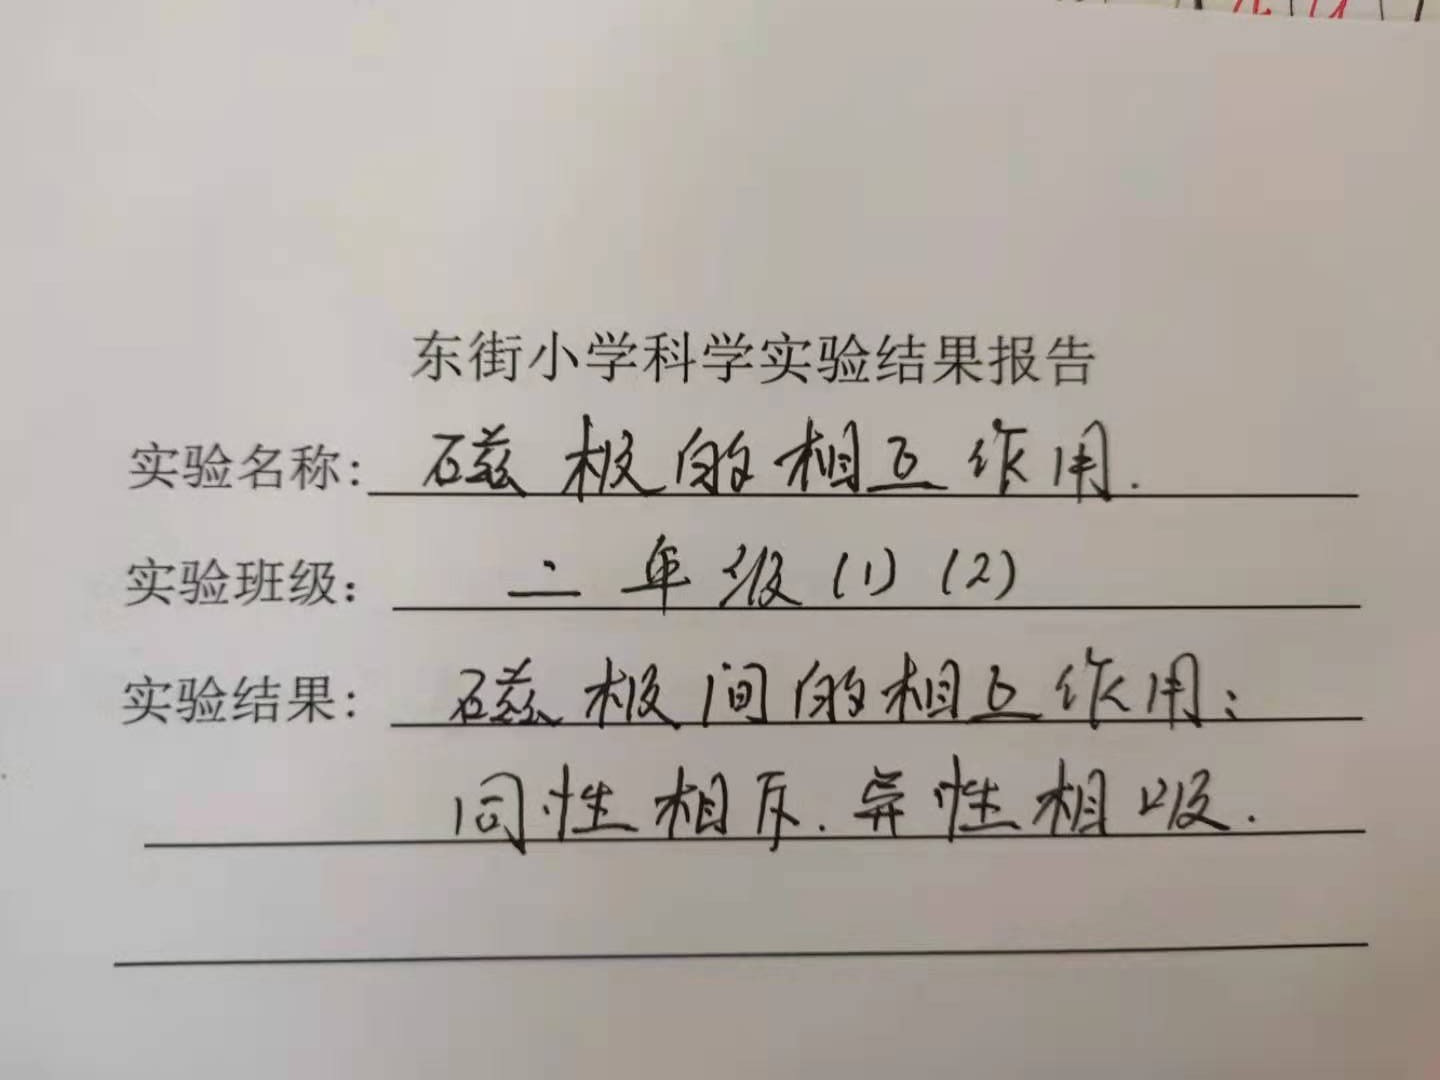 东街小学科学实验结果报告
实验名称: 磁极的相互作用.
实验班级: 二年级(1)(2)
实验结果: 磁极间的相互作用:
同性相斥.异性相吸.